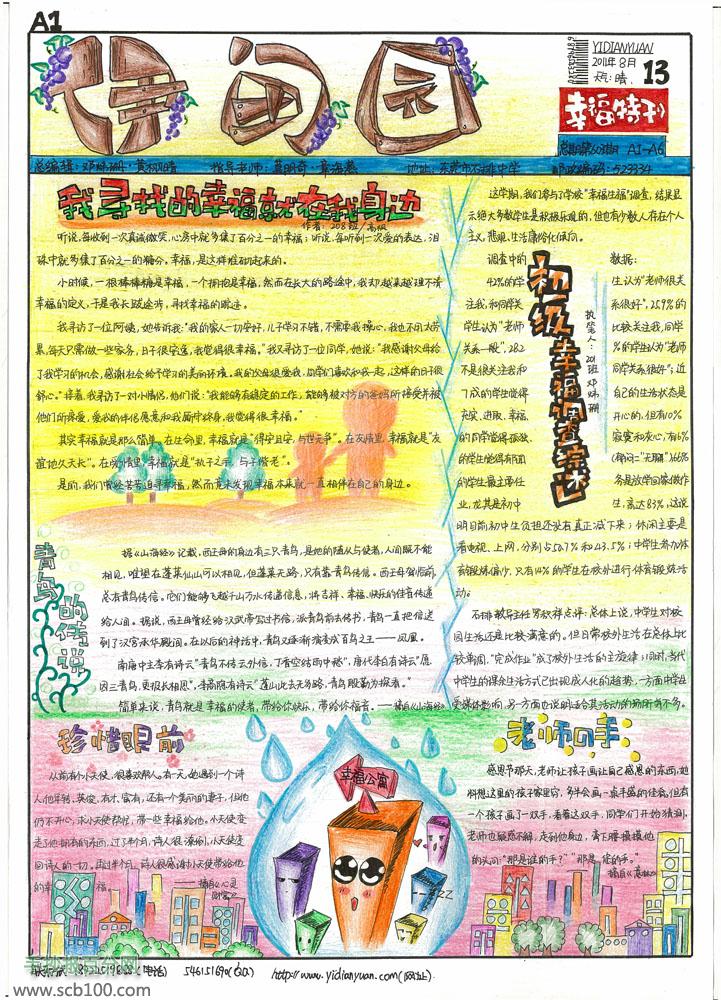 A1
伊甸园
YIDIANYUAN
2011年8月
天气:晴
13
幸福特刊
A1-A6
邮政编码:523334
我寻找的幸福就在我身边
作者:208班
听说,每收到一次真诚微笑,心房中就多集了百分之一的幸福;听说,每听到一次爱的表达,泪
珠中就多集了百分之一的糖分。幸福,是这样堆砌起来的。
小时候,一根棒棒糖是幸福,一个拥抱是幸福,然而在长大的路途中,我却越来越理不清
幸福的定义,于是我长跋途涉,寻找幸福的踪迹。
我寻访了一位阿姨,她告诉我:“我的家人一切安好,儿子学习不错,不需要我操心,我也不用太劳
累,每天只需做一些家务,日子很安逸,我觉得很幸福。”我又寻访了一位同学,她说:“我感谢父母给
了我学习的机会,感谢社会给予学习的美丽环境。我的父母很爱我,同学们喜欢和我一起,这样的日子很
舒心。”接着,我寻访了一对小情侣,他们说:“我能够有稳定的工作,能够被对方的爸妈所接受并被
他们所疼爱,爱我的伴侣愿意和我厮守终身,我觉得很幸福。”
其实幸福就是那么简单。在生命里,幸福就是“得安且安,与世无争”。在友情里,幸福就是“友
谊地久天长”。在爱情里,幸福就是“执子之手,与子偕老”。
是的,我们曾经苦苦追寻幸福,然而竟未发现幸福本来就一直相伴在自己的身边。
这学期,我们参与了学校“幸福生福”调查,结果显
示绝大多数学生是积极乐观的,但也有少数人存在个人
主义,悲观,生活庸俗化倾向。
调查中的
数据:
初级幸福调查综述
执笔人:201班 邓妹珊
42%的学
生认为“老师很关
注我,和同学关
系很好”,25.9%的
学生认为“老师
比较关注我,同学
关系一般”,28.2
%的学生认为“老师
不是很关注我和
同学关系很好”;近
7成的学生能得
自己的生活状态是
充实、进取、幸福、
开心的,但有10%
的同学觉得孤独、
寂寞和灰心,有6%
的学生能得有面
的学生最主要任
务是放学回家做作
业,尤其是初中
生,高达83%,这说
明目前初中生负担还没有真正减下来;休闲主要是
看电视、上网,分别占50.7%和43.5%;中学生参加体
育锻炼偏少,只有14%的学生在校外进行体育锻炼活
动。
石排教导主任罗织祥点评:总体上说,中学生对校
园生活还是比较满意的。但日常校外生活在总体上比
较单调,“完成作业”成了校外生活的主旋律;同时,当代
中学生的课余生活方式已出现成人化的趋势,一方面中学生
受媒体影响,另一方面也说明适合其活动的场所有不多。
青鸟的传说
据《山海经》记载,西王母的身边有三只青鸟,是他的随从与使者,人间既不能
相见,唯望在蓬莱仙山可以相见,但蓬莱无路,只有靠青鸟传信。西王母驾临前,
总有青鸟传信。它们能够飞越千山万水传递信息,将吉祥、幸福、快乐的佳音传递
给人间。据说,西王母曾经给汉武帝写过书信,派青鸟前去传书,青鸟一直把信送
到了汉宫承华殿前。在以后的神话中,青鸟又逐渐演变成百鸟之王——凤凰。
南唐中主李有诗云“青鸟不传云外信,丁香空结雨中愁”,唐代李白有诗云“愿
因三青鸟,更报长相思”,李商隐有诗云“蓬山此去无多路,青鸟殷勤为探看。”
简单来说,青鸟就是幸福的使者,带给你快乐,带给你福音。——摘自《山海经》
珍惜眼前
从前有个小天使,很喜欢帮人。有一天,她遇到一个诗
人,他年轻、英俊、有才、富有,还有一个美丽的妻子,但他
仍不开心,求小天使帮忙,带一些幸福给他。小天使变
走了他拥有的东西,过了半个月,诗人很潦倒,小天使变
回诗人的一切。再过半个月,诗人很感谢小天使带给他
的幸
摘自《心灵
幸福公寓
ZZ
老师的手
感恩节那天,老师让孩子画让自己感恩的东西,她
料想这里的孩子家里穷,多半会画一桌丰盛的佳肴,但有
一个孩子画了一双手,看着这双手,同学们开始猜测,
老师也疑惑不解,走到他身边,弯下腰摸摸他
的头问:“那是谁的手?”“那是,您的手。”
摘自《意林》
(电话)
546151690(QQ)
http://www.yidianyuan.com(网址)
www.scb100.com